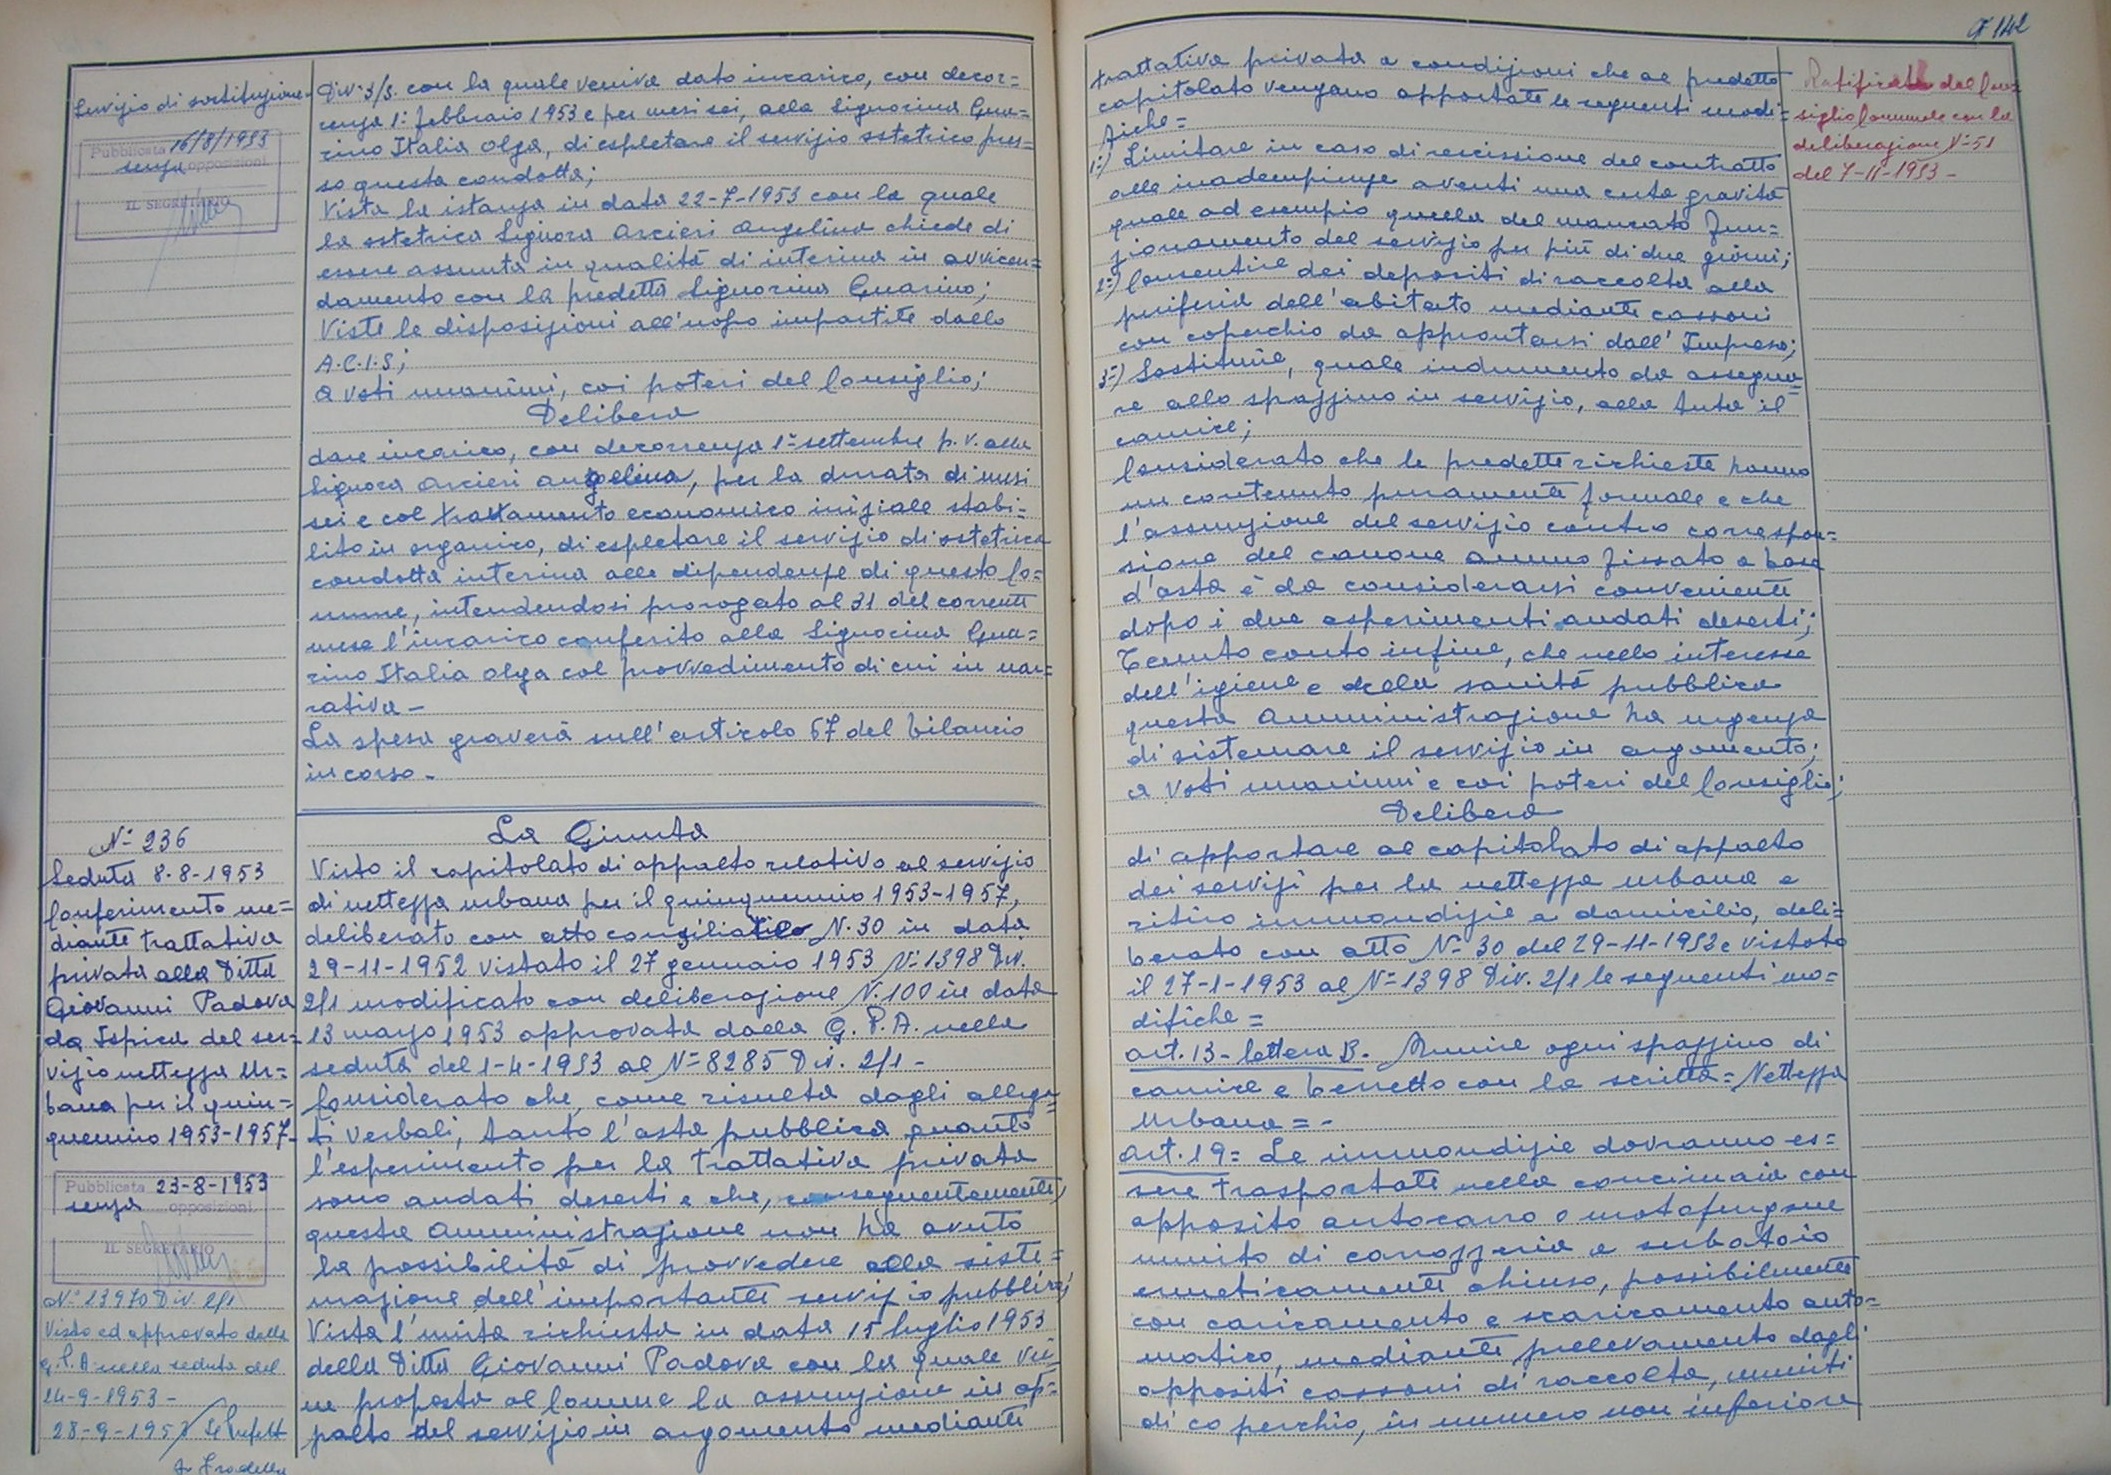 Servizio di sostituzione-
Pubblicata 16/8/1953
senza opposizioni
IL SEGRETARIO
Div. 3/S. con la quale veniva dato incarico, con decor=
renza 1° febbraio 1953 e per mesi sei, alla Signorina Gua=
rino Italia Olga, di espletare il servizio ostetrico pres=
so questa condotta;
Vista la istanza in data 22-7-1953 con la quale
la ostetrica Signora Arcieri Angelina chiede di
essere assunta in qualità di interina in avvicen=
damento con la predetta Signorina Guarino;
Viste le disposizioni all'uopo impartite dallo
A.C.I.S;
a voti unanimi, coi poteri del Consiglio;
Delibera
dare incarico, con decorrenza 1° settembre p.v. alla
Signora Arcieri Angelina, per la durata di mesi
sei e col trattamento economico iniziale stabi=
lito in organico, di espletare il servizio di ostetrica
condotta interina alle dipendenze di questo Co=
mune, intendendosi prorogato al 31 del corrente
mese l'incarico conferito alla Signorina Gua=
rino Italia Olga col provvedimento di cui in nar=
rativa-
La spesa graverà sull'articolo 67 del bilancio
in corso-
N° 236
Seduta 8-8-1953
Conferimento me=
diante trattativa
privata alla Ditta
Giovanni Padova
da Ispica del ser=
vizio nettezza Ur=
bana per il quin=
quennio 1953-1957-
Pubblicata 23-8-1953
senza opposizioni
IL SEGRETARIO
N° 13970 Div. 2/1
Visto ed approvato dalla
G.P.A. nella seduta del
24-9-1953-
28-9-1953 Il Prefetto
La Giunta
Visto il capitolato di appalto relativo al servizio
di nettezza urbana per il quinquennio 1953-1957,
deliberato con atto consiliare N. 30 in data
29-11-1952 vistato il 27 gennaio 1953 N° 1398 Div.
2/1 modificato con deliberazione N. 100 in data
13 marzo 1953 approvata dalla G.P.A. nella
seduta del 1-4-1953 al N° 8285 Div. 2/1-
Considerato che, come risulta dagli allega=
ti verbali, tanto l'asta pubblica quanto
l'esperimento per la trattativa privata
sono andati deserti e che, conseguentemente,
questa Amministrazione non ha avuto
la possibilità di provvedere alla siste=
mazione dell'importante servizio pubblico;
Vista l'unita richiesta in data 15 luglio 1953
della Ditta Giovanni Padova con la quale vie=
ne proposta al Comune la assunzione in ap=
palto del servizio in argomento mediante
142
trattativa privata a condizioni che al predetto
capitolato vengano apportate le seguenti modi=
fiche=
1°) Limitare in caso di rescissione del contratto
alle inadempienze aventi una certa gravità
quale ad esempio quella del mancato fun=
zionamento del servizio per più di due giorni;
2°) Consentire dei depositi di raccolta alla
periferia dell'abitato mediante cassoni
con coperchio da approntarsi dall'Impresa;
3°) Sostituire, quale indumento da assegna=
re allo spazzino in servizio, alla tuta il
camice;
Considerato che le predette richieste hanno
un contenuto puramente formale e che
l'assunzione del servizio contro correspon=
sione del canone annuo fissato a base
d'asta è da considerarsi conveniente
dopo i due esperimenti andati deserti;
Tenuto conto infine, che nello interesse
dell'igiene e della sanità pubblica
questa Amministrazione ha urgenza
di sistemare il servizio in argomento;
a voti unanimi e coi poteri del Consiglio;
Delibera
di apportare al capitolato di appalto
dei servizi per la nettezza urbana e
ritiro immondizie a domicilio, deli=
berato con atto N° 30 del 29-11-1952 e vistato
il 27-1-1953 al N° 1398 Div. 2/1 le seguenti mo=
difiche=
art. 13- lettera B. Munire ogni spazzino di
camice e berretto con la scritta= Nettezza
Urbana=-
art. 19= Le immondizie dovranno es=
sere trasportate nella concimaia con
apposito autocarro o motofurgone
munito di carrozzeria a serbatoio
ermeticamente chiuso, possibilmente
con caricamento e scaricamento auto=
matico, mediante prelevamento dagli
appositi cassoni di raccolta, muniti
di coperchio, in numero non inferiore
Ratificata dal Con=
siglio Comunale con la
deliberazione N° 51
del 7-11-1953-